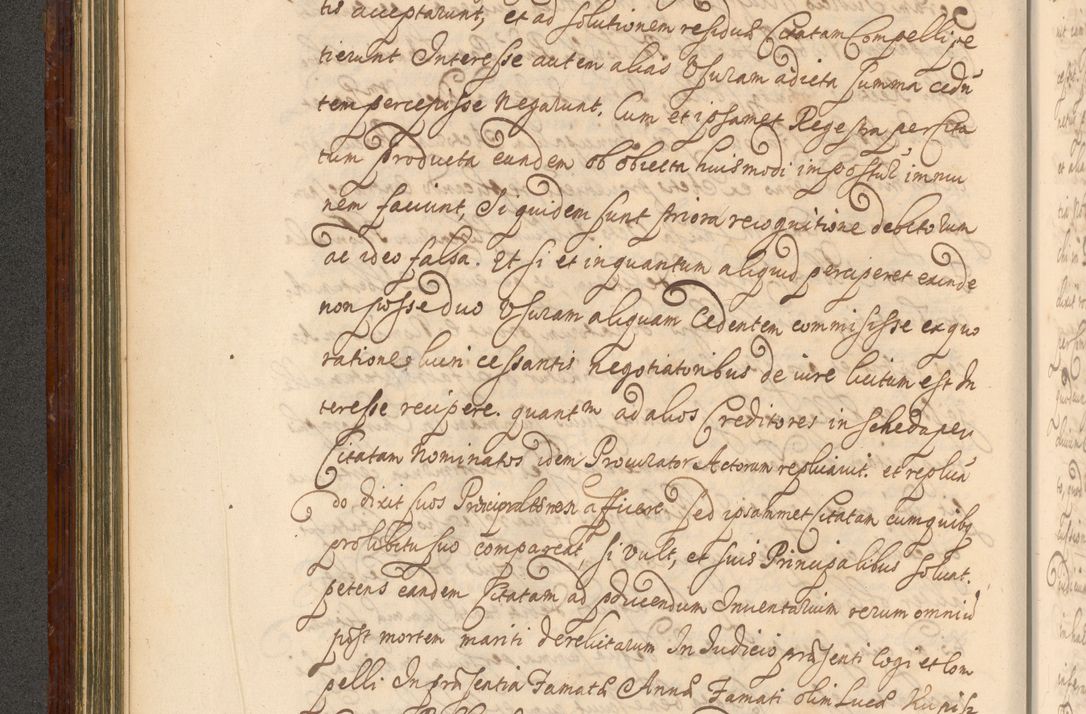 tis acceptarunt, et ad solutionem residuæ Citatam Compelli pe
tierunt Interesse autem alias Usuram adicta summa cedẽ
tem percepisse Negarunt. Cum et ipsamet Regestra per Cita
tum producta eandem ob obiecta huiusmodi impostur̃ immu
nem faciunt, Si quidem sunt priora recognitione debitorum
ac ideo falsa. Et si et inquantum aliquid perciperet exinde
non posse duo Usuram aliquam Cedentem commisisse ex quo
ratione lucri cessantis negotiatoribus de iure licitum est In
teresse recipere. quantm ad alios Creditores in Scheda per
Citatam Nominatos idem Procurator Actorum replicavit. et replicã
do dixit suos Principales non afficere Sed ipsammet Citatam cum quibq
pro libitu suo compareat, si vult, et suis Principalibus solvat.
petens eandem Citatam ad p̃ducendum Inventarium rerum omniũ
post mortem mariti derelictarum In Iudicio prũsenti Cogi et Com
pelli In prũsentia Famatæ Annæ Famati olim Lucæ